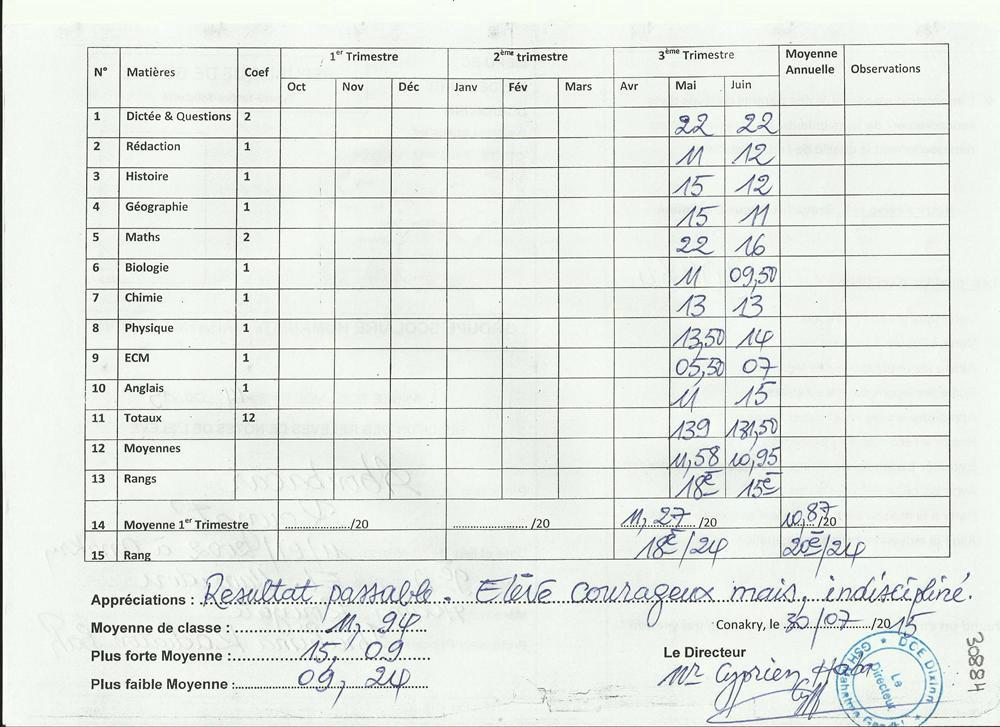 N° Matières Coef 1er Trimestre 2ème trimestre 3ème Trimestre Moyenne Annuelle Observations
Oct Nov Déc Janv Fév Mars Avr Mai Juin
1 Dictée & Questions 2 22 22
2 Rédaction 1 11 12
3 Histoire 1 15 12
4 Géographie 1 15 11
5 Maths 2 22 16
6 Biologie 1 11 09,50
7 Chimie 1 13 13
8 Physique 1 13,50 14
9 ECM 1 05,50 07
10 Anglais 1 11 15
11 Totaux 12 139 131,50
12 Moyennes 11,58 10,95
13 Rangs 18e 15e
14 Moyenne 1er Trimestre ................/20 ................/20 11,27 /20 10,87/20
15 Rang 18e/24 20e/24
Appréciations : Resultat passable. Elève courageux mais indiscipliné.
Moyenne de classe : 11,94 Conakry, le 30/07/2015
Plus forte Moyenne : 15,09 Le Directeur
Plus faible Moyenne : 09,24 Mr Cyprien Haba
DCE Dixinn
Le Directeur
30884